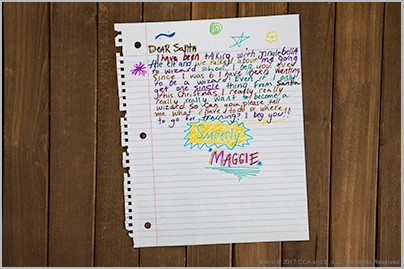 Dear Santa
I have been talking with Jinglebells
the elf and we talked about me going
to wizard school. I beg you ever
since I was 6 I have been wanting
to be a wizard! Even if I only
get one single thing from Santa
this Christmas I really really
really really want to become a
wizard so can you please tell
me what I have to do or where
to go for training? I beg you!!
Sincerly
MAGGIE
© 2017 CCA and B, LLC. All Rights Reserved.